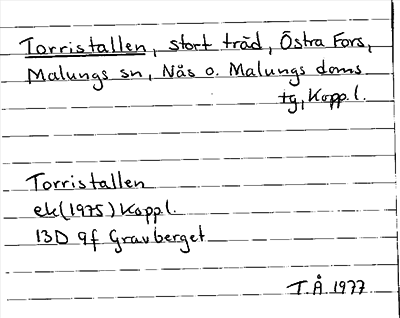 Torristallen, stort träd, Östra Fors,
Malungs sn, Nås o. Malungs doms
tg, Kopp l.
Torristallen
ek (1975) Kopp l.
13D 9f Gravberget
T.Å 1977